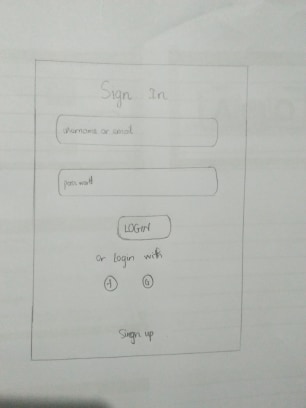 Sign In
username or email
password
LOGIN
or login with
G
Sign up